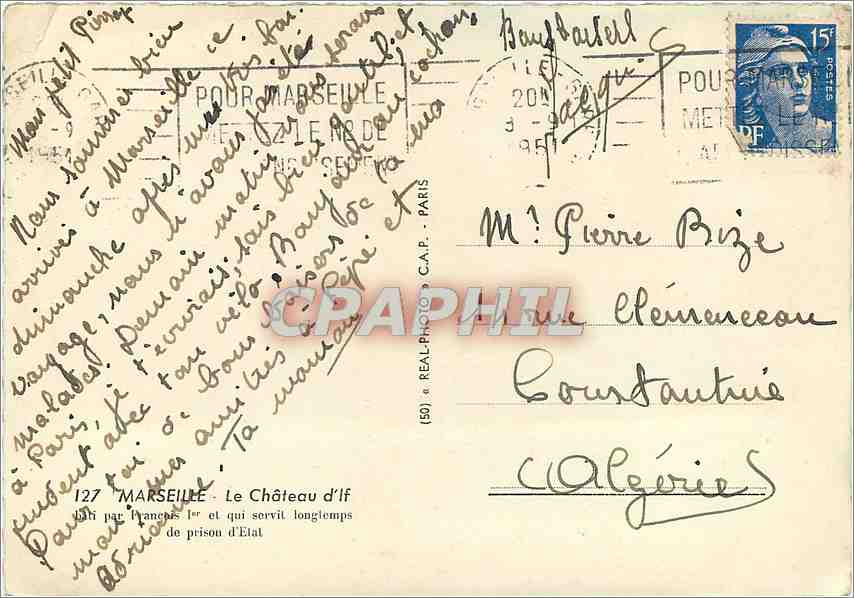 Mon petit Pierre
Nous sommes bien
arrivés à Marseille ce
dimanche après un très bon
voyage, nous n'avons pas été
malades. Demain matin nous serons
à Paris, je t'écrirai, sois bien gentil, et
prudent avec ton vélo. Bonjour au cochon,
Pour toi de bons baisers de ta ma
man, mes amitiés à Pépé et
Adrienne. Ta maman
127 MARSEILLE - Le Château d'If
bâti par François Ier et qui servit longtemps
de prison d'Etat
(50) « REAL-PHOTO » C.A.P. - PARIS
POUR MARSEILLE
LE Nº DE
20H
9
1951
POUR MARSE
METT LE
15F
POSTES
RF
Mr Pierre Bize
rue Clémenceau
Constantine
(Algérie)
CPAPHIL